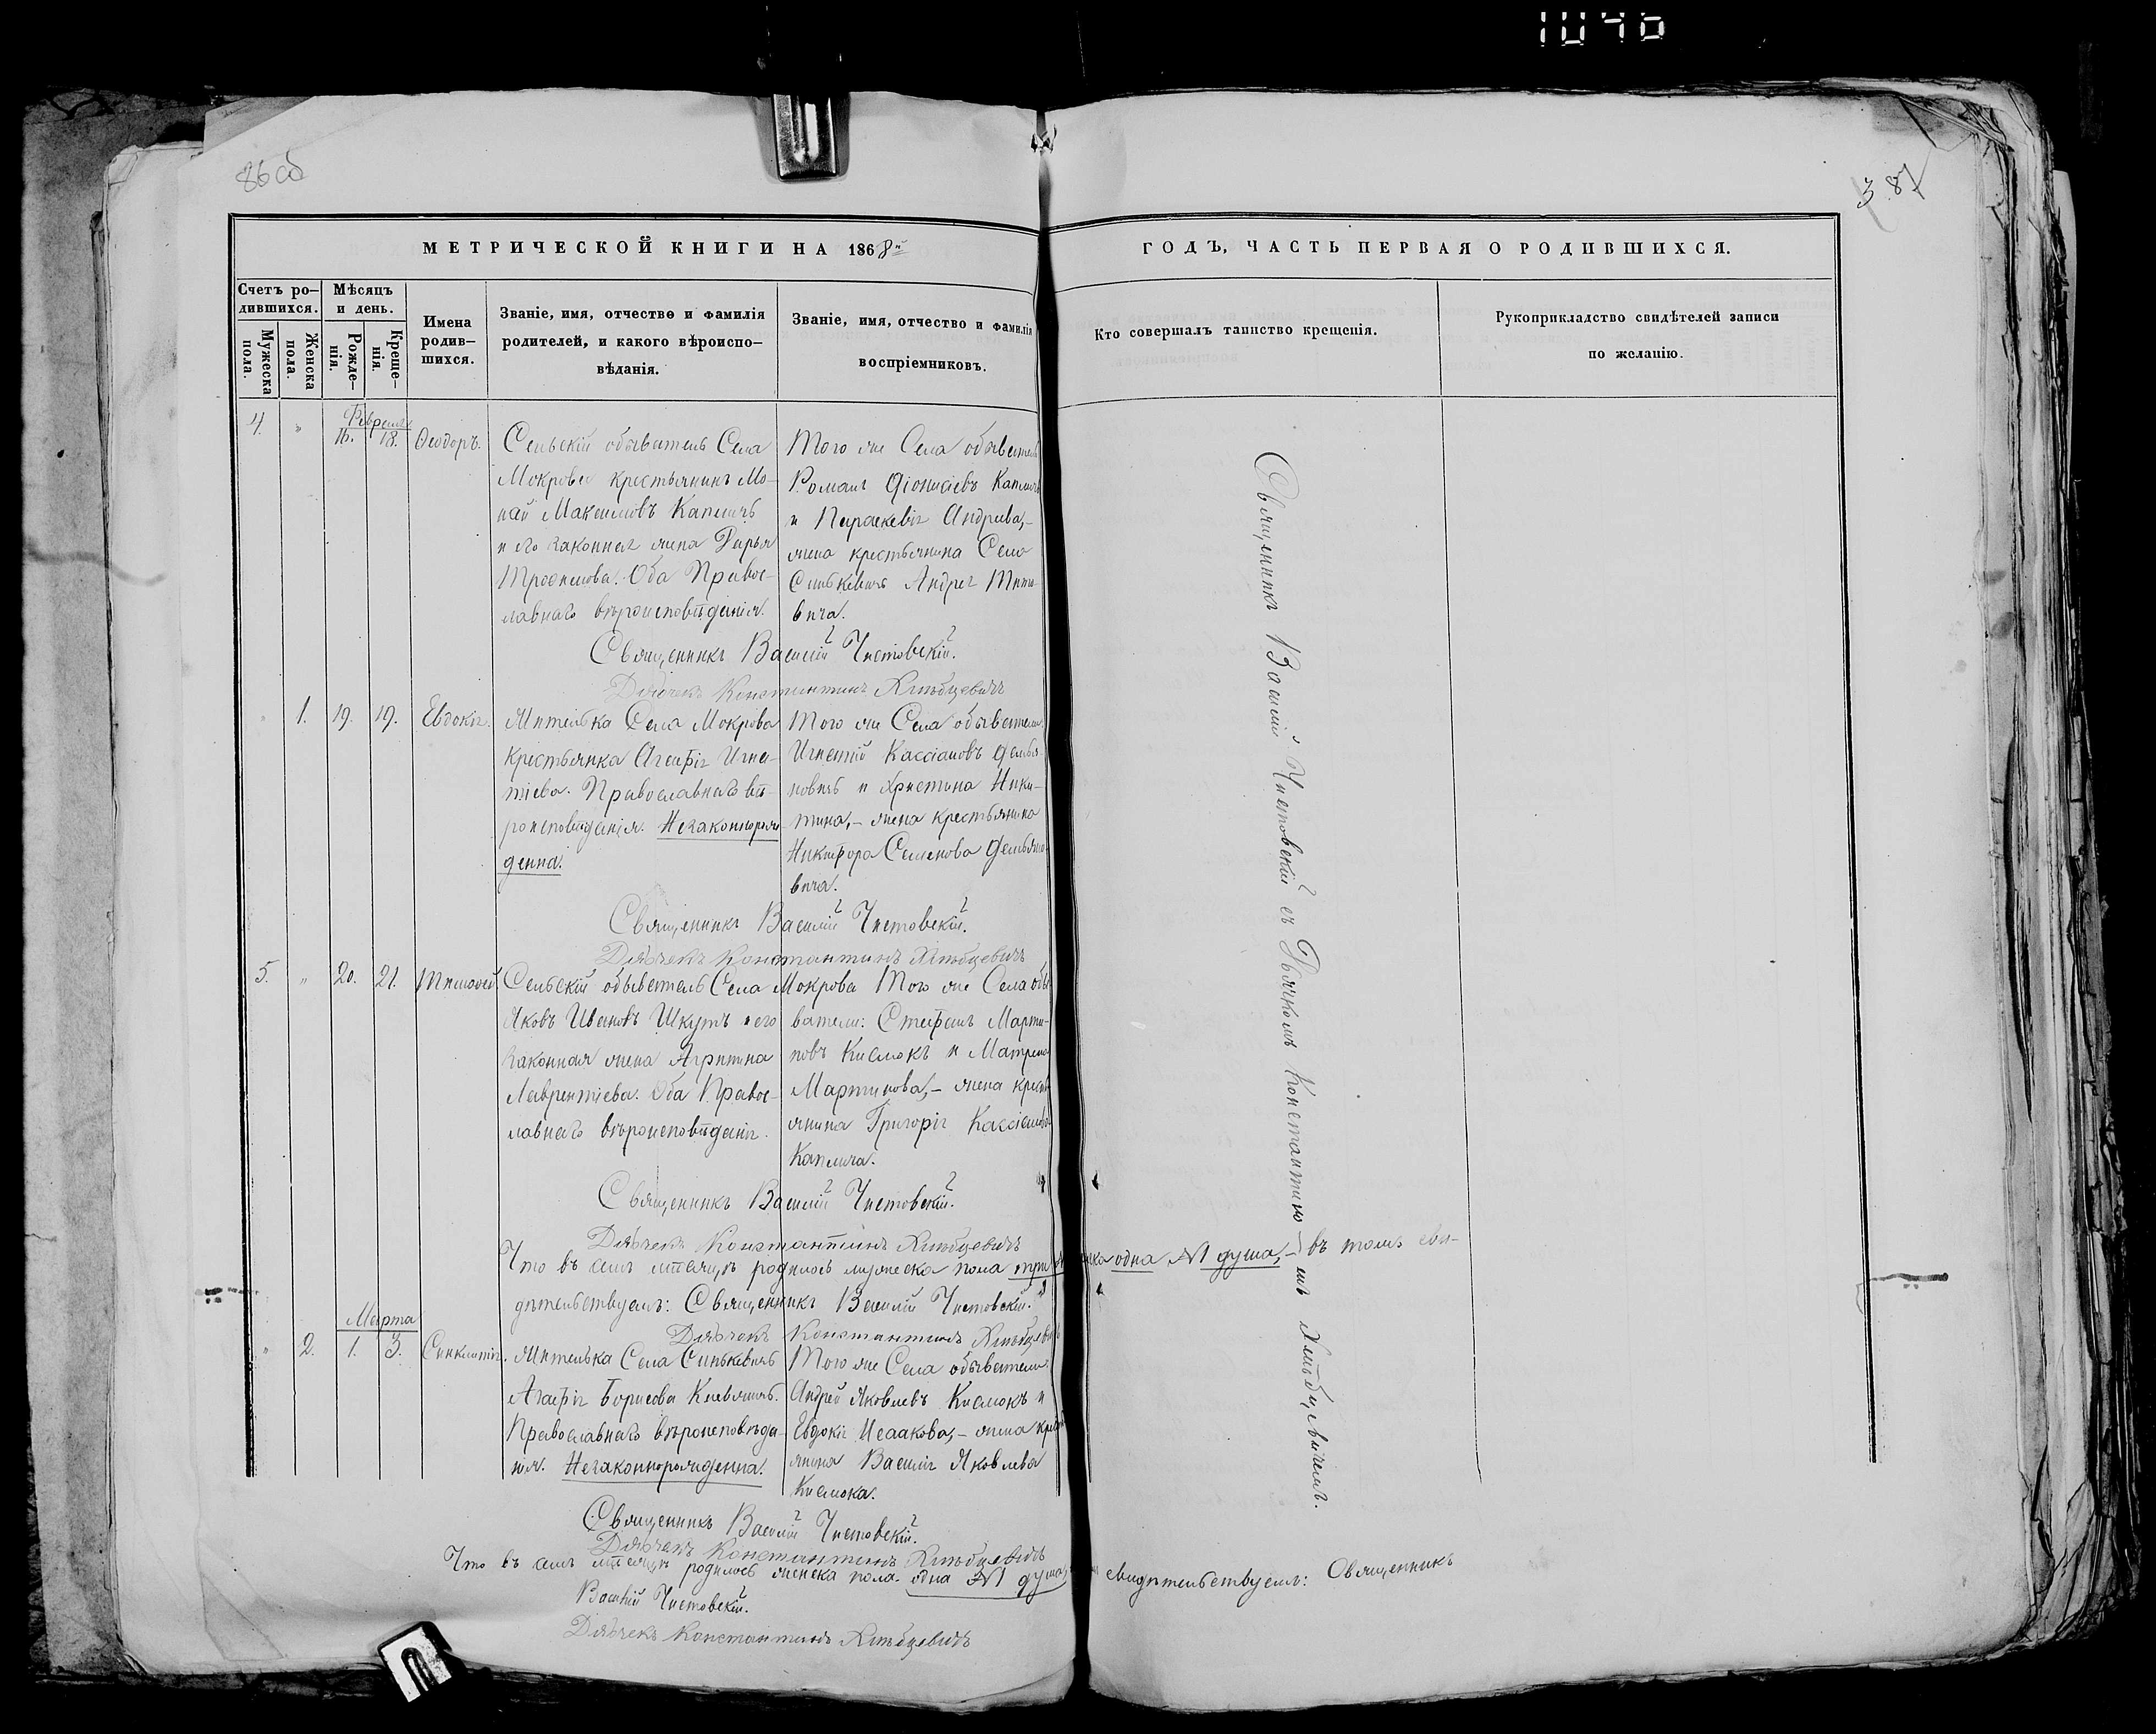 86 об
3. 87
МЕТРИЧЕСКОЙ КНИГИ НА 1868й
ГОДЪ, ЧАСТЬ ПЕРВАЯ О РОДИВШИХСЯ.
Счетъ ро-
дившихся.
Мужеска
пола.
Женска
пола.
Мѣсяцъ
и день.
Рожде-
нія.
Креще-
нія.
Имена
родив-
шихся.
Званіе, имя, отчество и фамилія
родителей, и какого вѣроиспо-
вѣданія.
Званіе, имя, отчество и фамилія
воспріемниковъ.
Кто совершалъ таинство крещенія.
Рукоприкладство свидѣтелей записи
по желанію.
Февраля
4. " 16. 18. Ѳеодоръ.
Сельскій обыватель Села
Мокрова крестьянинъ Мо-
кай Максимовъ Капличъ
и его законная жена Дарья
Трофимова. Оба Правос-
лавнаго вѣроисповѣданія.
Того же Села обыватель
Романъ Діонисіевъ Капличъ
и Параскевія Андреева,-
жена крестьянина Села
Синкевичъ Андрея
вича.
Священникъ Василій Чистовскій.
Дьячекъ Константинъ Хлѣбцевичъ
" 1. 19. 19. Евдокія.
Жителька Села Мокрова
Крестьянка Агафія Игна-
тіева. Православнаго вѣ-
роисповѣданія. Незаконнорож-
денна.
Того же Села обыватели
Игнатій Кассіановъ Демья-
новичъ и Христина Ники-
тина,- жена крестьянина
Никифора Семенова Демьяно-
вича.
Священникъ Василій Чистовскій.
Дьячекъ Константинъ Хлѣбцевичъ
5. " 20. 21. Тимофей.
Сельскій обыватель Села Мокрова
Яковъ Ивановъ Шкутъ и его
законная жена Агрипина
Лаврентіева. Оба Правос-
лавнаго вѣроисповѣданія.
Того же Села обы-
ватели: Стефанъ Марти-
новъ Кислюкъ и Матрена
Мартинова,- жена кресть-
янина Григорія Кассіанова
Каплича.
Священникъ Василій Чистовскій.
Дьячекъ Константинъ Хлѣбцевичъ
Что въ семъ мѣсяцѣ родилось мужеска пола три женска одна №1 душа,- въ томъ сви-
дѣтельствуемъ: Священникъ Василій Чистовскій.
Дьячекъ Константинъ Хлѣбцевичъ
Марта
" 2. 1. 3. Синклитія.
Жителька Села Синкевичъ
Агафія Борисова
Православнаго вѣроисповѣда-
нія. Незаконнорожденна.
Того же Села обыватели
Андрей Яковлевъ Кислюкъ и
Евдокія Исаакова,- жена кресть-
янина Василія Яковлева
Кислюка.
Священникъ Василій Чистовскій.
Дьячекъ Константинъ Хлѣбцевичъ
Что въ семъ мѣсяцѣ родилось женска пола одна №1 душа, свидѣтельствуемъ: Священникъ
Василій Чистовскій.
Дьячекъ Константинъ Хлѣбцевичъ
Священникъ Василій Чистовскій съ Дьячкомъ Константиномъ Хлѣбцевичемъ.